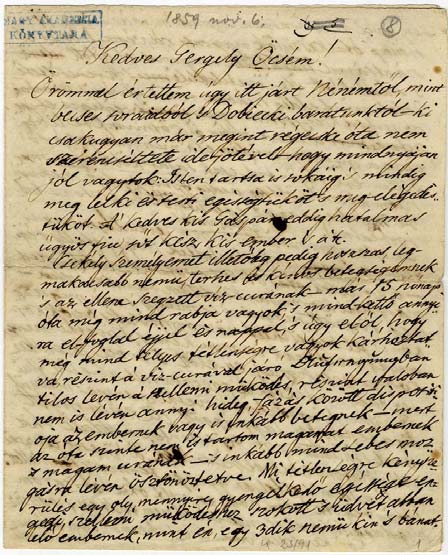 MAGY. AKADEMIA
KÖNYVTÁRA
1859 nov. 6.
8
Kedves Gergely Öcsém!
Örömmel értettem úgy itt járt Nénémtől, mint
becses soraidból s Dobieczki barátunktól ki
csakugyan már megint régecske óta nem
szerencséltete ide jötével hogy mindnyájan
jól vagytok. Isten tartsa is sokáig s mindig
meg lelki és testi egésségtöket s megelége-
téstöket. A' kedves kis Gáspár eddig hatalmas
ügyös fiu sőt kész kis ember is át.
Csekély személyemet illetőleg pedig hosszas, leg-
makacsabb nemű, terhes és kínos betegségemnek
s az ellene szegzett viz-curának már 15 honap
óta még mind rabja vagyok, s mind kettő annyi-
ra elfoglal éjjel és nappel, s úgy elől, hogy
még mind teljes tetlenségre vagyok kárhoztat
va, részint a viz-curával járó
tilos lévén a szellemi működés, részint valoban
nem is lévén annyi hideg rázás között dispositi
oja az embernek vagy is inkább betegnek – mert
az óta szinte nem is tartom magamat embernek
s magam urának – s inkább mind sebes moz
gásra lévén ösztönöztetve. Ni tétlenségre kénysze
rülés egy oly, mennyire gyengélkedő egéssége en-
gedi, szellemi működéshez szokott s hidvét abban
élő embernek, mint én, egy 3dik nemű kin s bánat
1